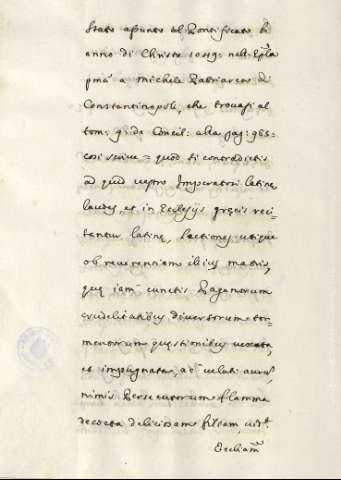 stato assunto al Pontificato l'
anno di Christo 1049: nell'Epla
pma a Michele Patriarca di
Constantinopoli, che trovasi al
tom: 9: de Concil: alla pag: 965=
cosi scrive = quod si contradictis
ad quid vestro Imperatori latinę
laudes, et in Ecclesijs gręcis reci=
tantur latinę lectiones utique
ob reverentiam illius matris,
quę iam cunctis Paganorum
crudelitatibus diversorum tor=
mentorum quęstionibus vexata,
et impugnata, ac veluti aurum
nimis Persecutorum flamma
decocta delicissam filiam, vidt.